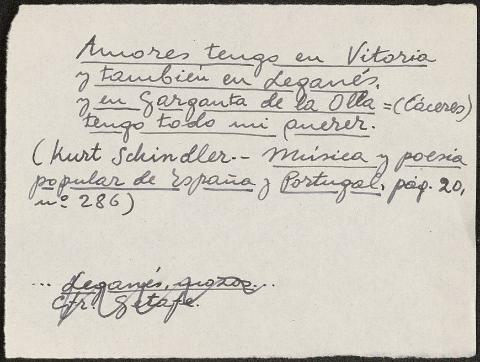 Amores tengo en Vitoria
y también en Leganés,
y en Garganta de la Olla = (Cáceres)
tengo todo mi querer.
(Kurt Schindler.- Música y poesía
popular de España y Portugal, pág. 20,
nº 286)
... Leganés, mozos...
Cfr. Getafe.